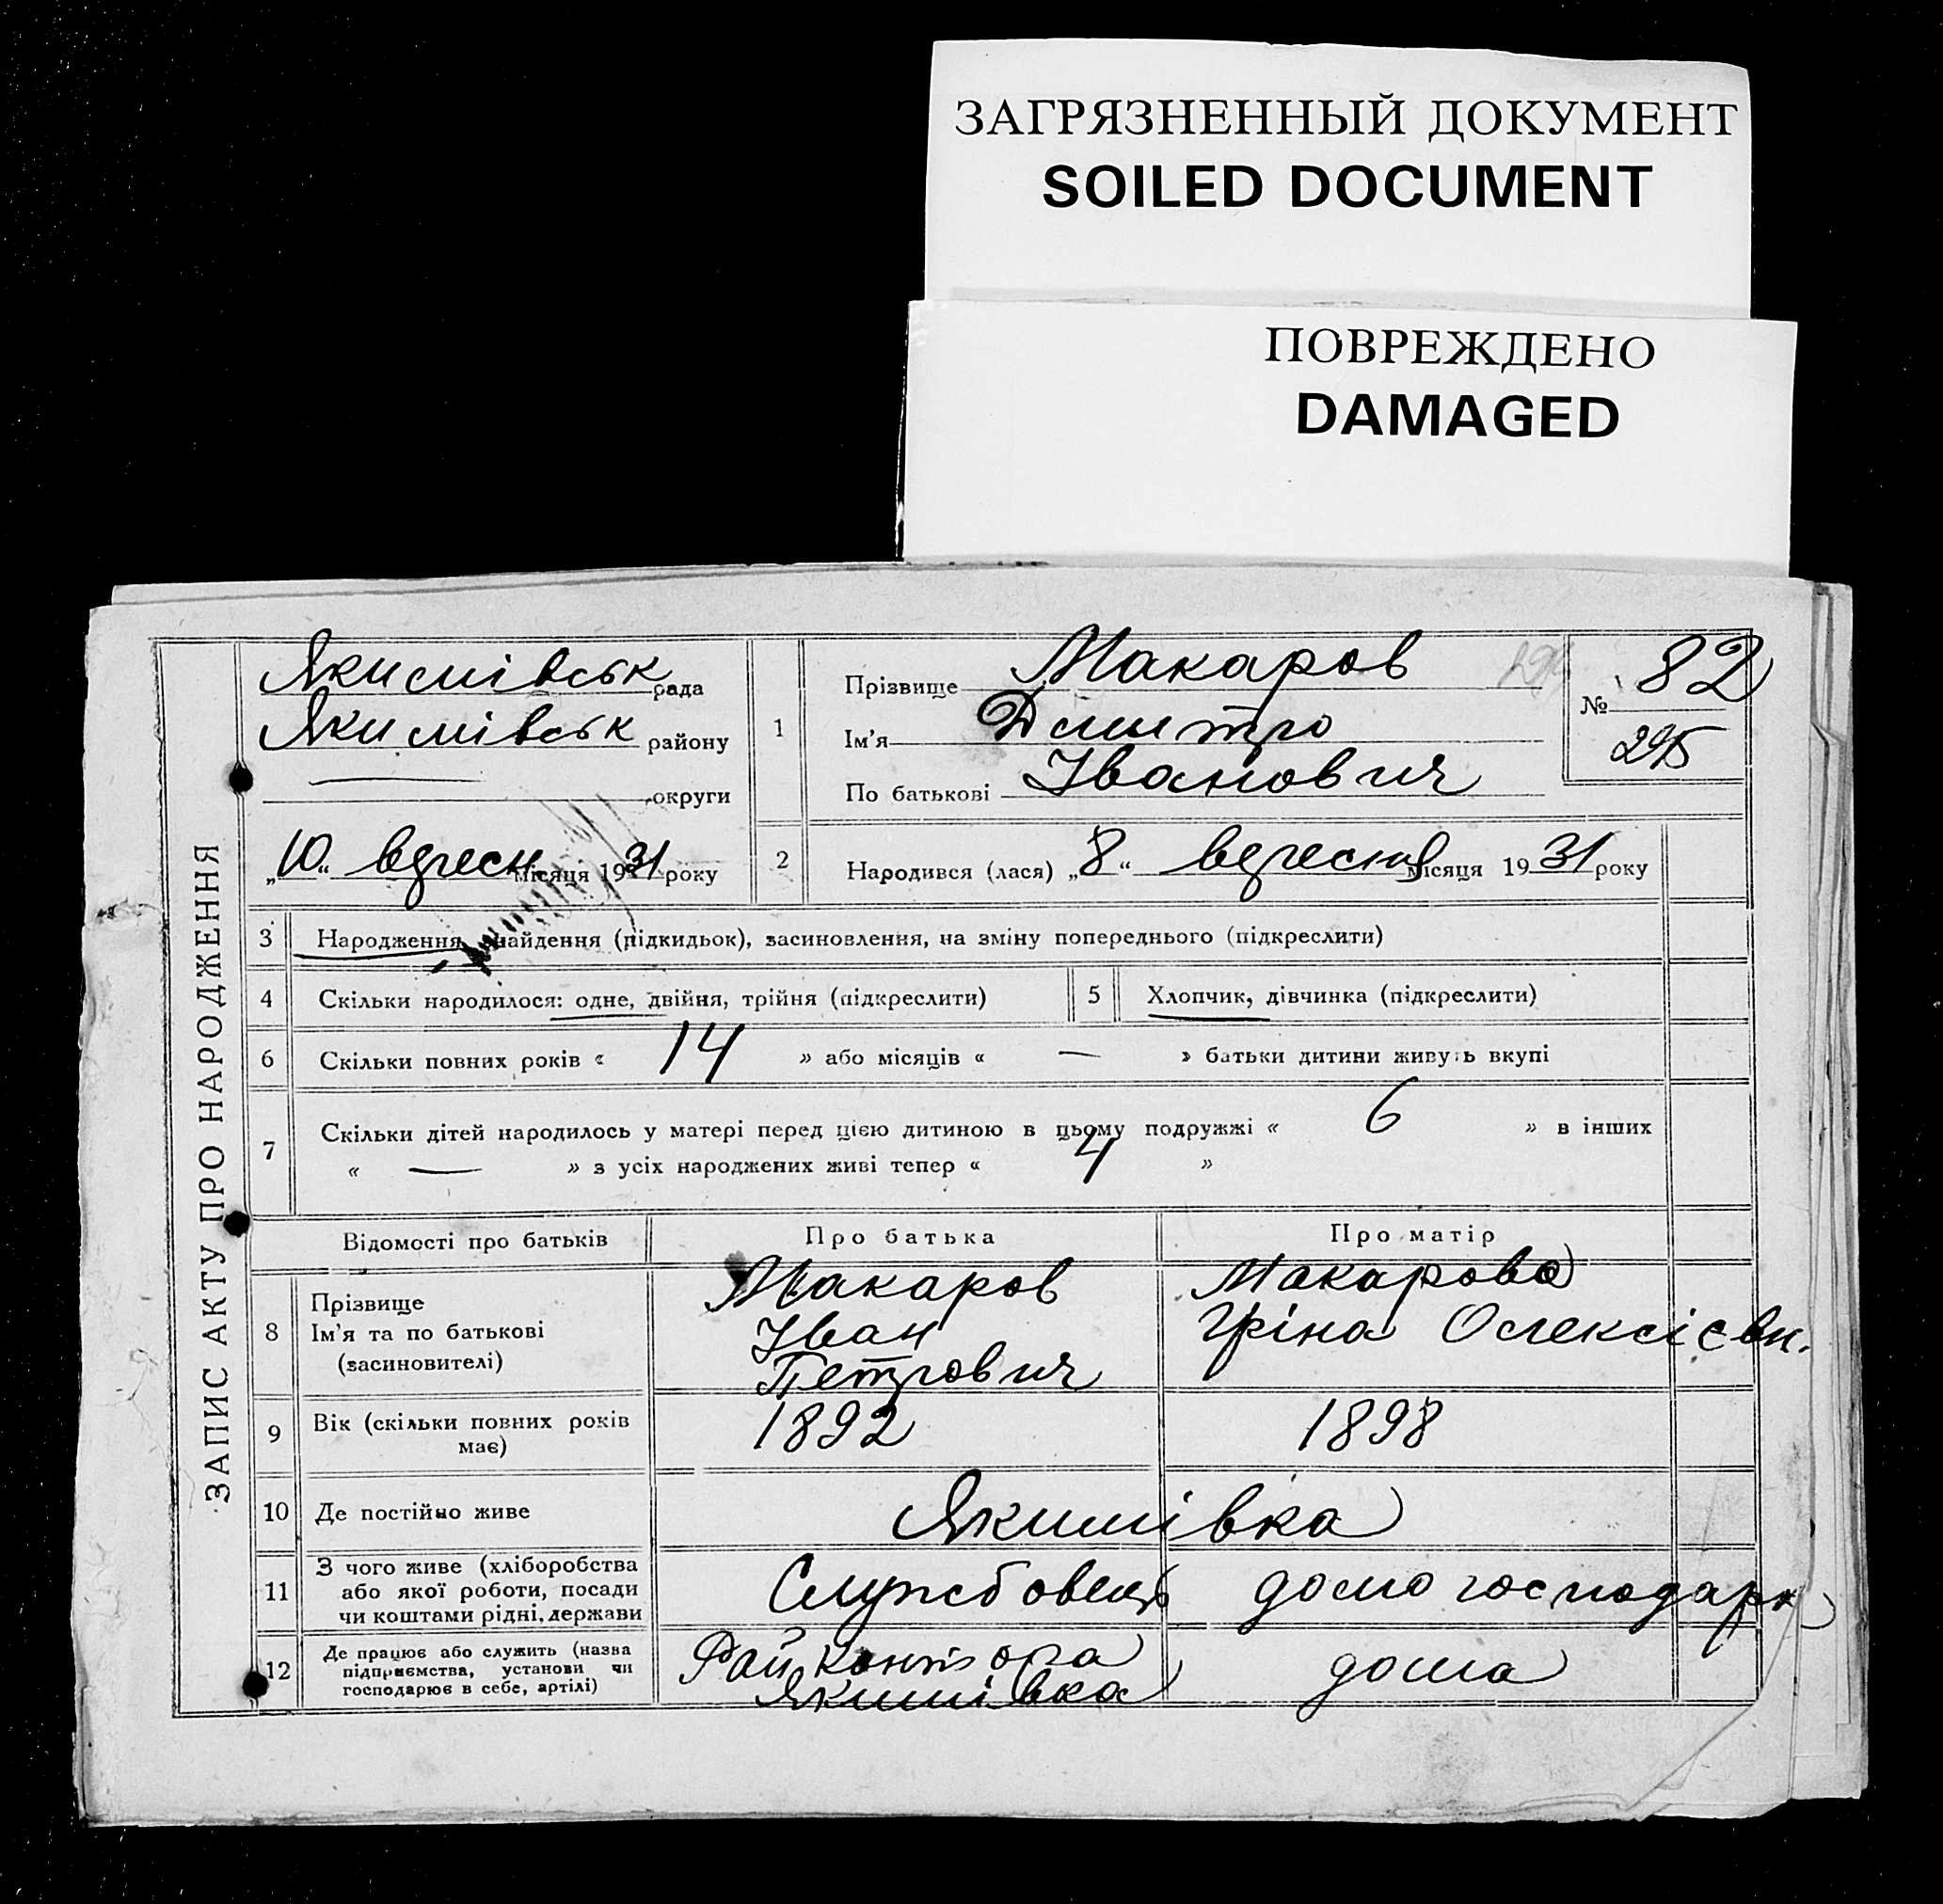 ЗАГРЯЗНЕННЫЙ ДОКУМЕНТ
SOILED DOCUMENT
ПОВРЕЖДЕНО
DAMAGED
ЗАПИС АКТУ ПРО НАРОДЖЕННЯ
Якимівськ рада
Якимівськ району
— округи
„10“ вересн місяця 1931 року
1
Прізвище Макаров
Ім'я Дмитро
По батькові Іванович
№ 82
295
2 Народився (лася) „8“ вересня місяця 1931 року
3 Народження, знайдення (підкидьок), засиновлення, на зміну попереднього (підкреслити)
4 Скільки народилося: одне, двійня, трійня (підкреслити)
5 Хлопчик, дівчинка (підкреслити)
6 Скільки повних років « 14 » або місяців « — » батьки дитини живуть вкупі
7 Скільки дітей народилось у матері перед цією дитиною в цьому подружжі « 6 » в інших
« — » з усіх народжених живі тепер « 4 »
Відомості про батьків Про батька Про матір
8
Прізвище
Ім'я та по батькові
(засиновителі)
Макаров
Іван
Петрович
Макарова
Іріна Олексієвн.
9
Вік (скільки повних років
має)
1892 1898
10 Де постійно живе Якимівка
11
З чого живе (хліборобства
або якої роботи, посади
чи коштами рідні, держави
Службовець домогосподарк
12
Де працює або служить (назва
підприємства, установи чи
господарює в себе, артілі)
Рай контора
Якимівка
дома